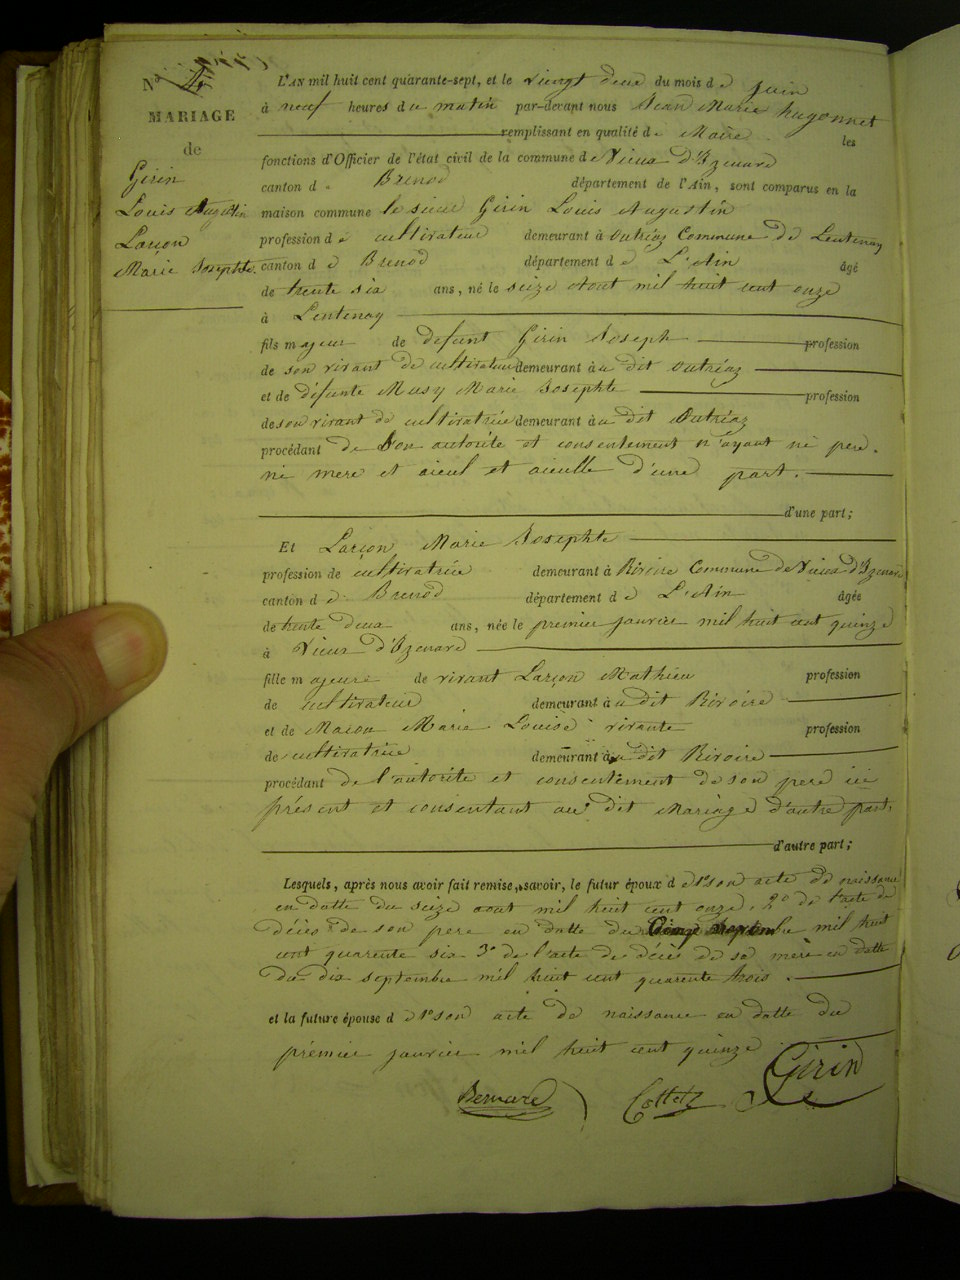 N° 4
MARIAGE
de
Girin
Louis Augustin
Larçon
Marie Josephte
L'AN mil huit cent quarante-sept, et le vingt deux du mois de juin
à neuf heures du matin par-devant nous Jean Marie hugonnet
remplissant en qualité de Maire les
fonctions d'Officier de l'état civil de la commune de Vieux d'Izenave
canton de Brenod département de l'Ain, sont comparus en la
maison commune le sieur Girin Louis Augustin
profession de cultivateur demeurant à Outriaz Commune de Lentenay
canton de Brenod département de L'Ain âgé
de trente six ans, né le seize Aout mil huit cent onze
à Lentenay
fils majeur de defunt Girin Joseph profession
de son vivant de cultivateur demeurant au dit Outriaz
et de défunte Musy Marie Josephte profession
de son vivant de cultivatrice demeurant au dit Outriaz
procédant de Son autorité et consentement n'ayant ni pere
ni mere et aieul et aieulle d'une part.
d'une part;
Et Larçon Marie Josephte
profession de cultivatrice demeurant à Rivoire Commune de Vieux d'Izenave
canton de Brenod département de L'Ain âgée
de trente deux ans, née le premier janvier mil huit cent quinze
à Vieux d'Izenave
fille majeure de vivant Larçon Mathieu profession
de cultivateur demeurant au dit Rivoire
et de Macon Marie Louise vivante profession
de cultivatrice demeurant au dit Rivoire
procédant de l'autorité et consentement de son pere ici
présent et consentant au dit Mariage d'autre part.
d'autre part;
Lesquels, après nous avoir fait remise, savoir, le futur époux de 1° son acte de naissance
en datte du seize aout mil huit cent onze, 2° de l'acte de
décès de son pere en datte du septembre mil huit
cent quarente six 3° de l'acte de décès de sa mere en datte
du dix septembre mil huit cent quarente trois.
et la future épouse de 1° son acte de naissance en datte du
prémier janvier mil huit cent quinze
Bernard Collet Girin